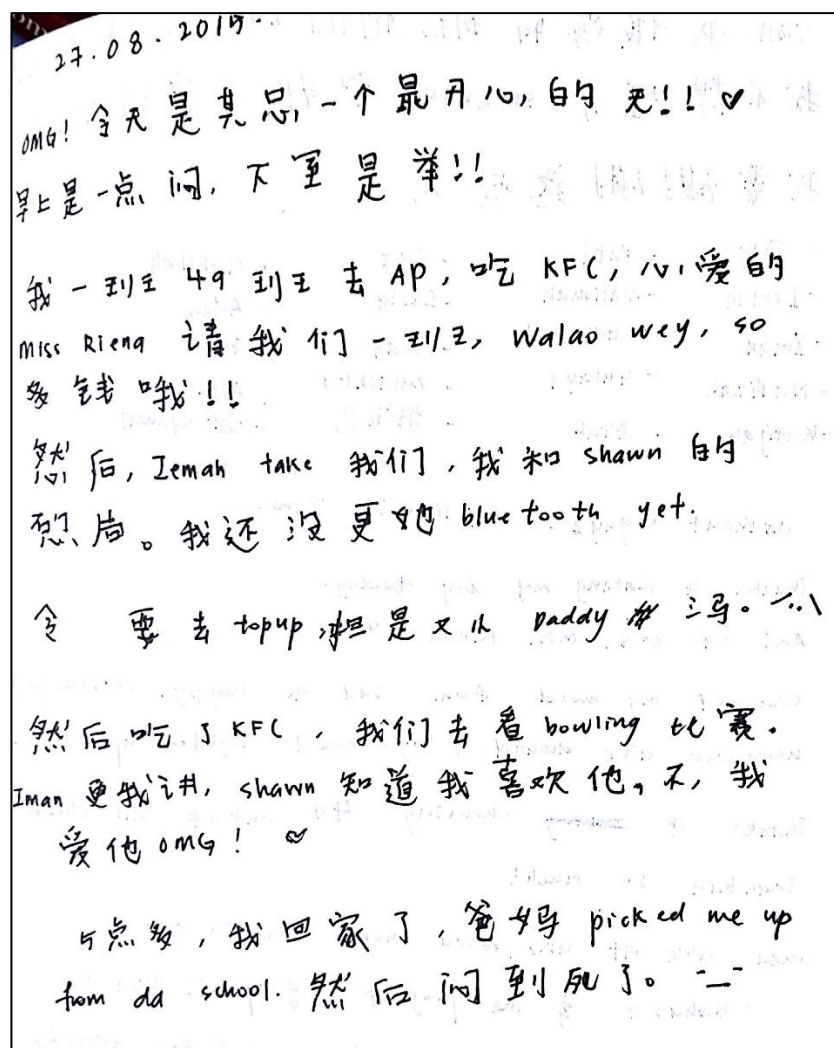 27.08.2015.
OMG! 今天是其忠一个最开心的天!! ♡
早上是一点闷, 下 是举!!
我一班 49 班去 AP, 吃 KFC, 心爱的
Miss Riena 请我们一班, Walao wey, so
多钱哦!!
然后, Iemah take 我们, 我和 shawn 的
照片。我还没更她 bluetooth yet.
今 要去 topup, 但是又 Daddy 骂。
然后吃了 KFC, 我们去看 bowling 比赛.
Iman 更我讲, shawn 知道我喜欢他。不, 我
爱他 OMG! ♡
5点多, 我回家了, 爸妈 picked me up
from da school. 然后闷到死了。 -_-